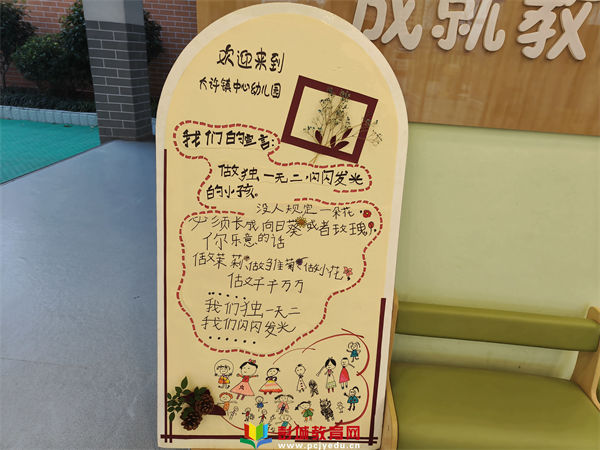 成就教
欢迎来到
大许镇中心幼儿园
我们的宣言:
做独一无二闪闪发光
的小孩。
没人规定一朵花
必须长成向日葵或者玫瑰
你乐意的话
做茉莉、做雏菊、做小花
做千千万万
......
我们独一无二
我们闪闪发光
......
彭城教育网
www.pcjyedu.cn